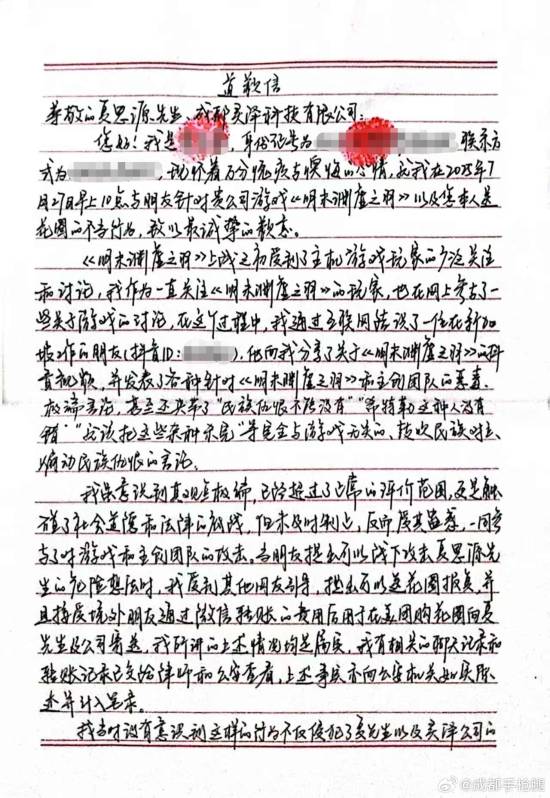 道歉信
尊敬的夏思源先生、成都灵泽科技有限公司：
您好！我是 ，身份证号为 联系方
式为 ，现怀着万分愧疚与懊悔的心情，就我在2025年7
月27日早上10点与朋友针对贵公司游戏《明末渊虚之羽》以及您本人送
花圈的不当行为，致以最诚挚的歉意。
《明末渊虚之羽》上线之初受到了主机游戏玩家的广泛关注
和讨论，我作为一直关注《明末渊虚之羽》的玩家，也在网上参与了一
些关于游戏的讨论，在这个过程中，我通过互联网结识了一位在新加
坡工作的朋友(抖音ID： )，他向我分享了关于《明末渊虚之羽》的抖
音视频，并发表了各种针对《明末渊虚之羽》和主创团队的恶毒、
极端言论，甚至还夹带了“民族仇恨不能没有”“希特勒这种人没有
错”“就该把这些杂种杀完”等完全与游戏无关的、挑起民族对立、
煽动民族仇恨的言论。
我虽意识到其观点极端，已经超过了正常的评价范围，更是触
碰了社会道德和法律的底线，但未及时制止，反而受其蛊惑，一同参
与了对游戏和主创团队的攻击。当朋友提出可以线下攻击夏思源先
生的危险想法时，我受到其他网友引导，提出可以送花圈报复，并
且接受境外朋友通过微信转账的费用后用于在美团购花圈向夏
先生及公司寄送，我所讲的上述情况均是属实，我有相关的聊天记录和
转账记录已交给律师和公安查看，上述事实亦向公安机关如实陈
述并计入笔录。
我当时没有意识到这样的行为不仅侵犯了夏先生以及灵泽公司的
@成都手枪腿